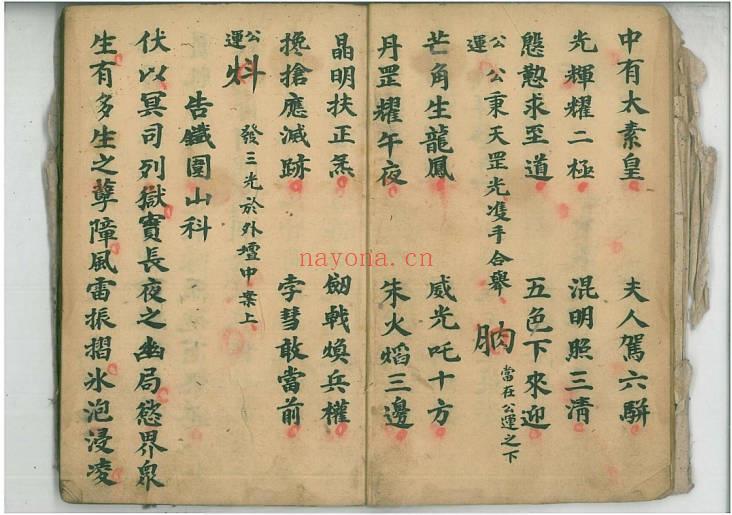 中有大素皇 夫人駕六騈
光輝耀二極 混明照三清
慇懃求至道 五色下來迎
公運 公秉天罡光凖手合舉 肭 當在公運之下
芒角生龍鳳 威光吒十方
丹罡耀午夜 朱火熖三邊
晶明扶正炁 劔戟煥兵權
攙搶應滅跡 孛彗敢當前
公運 炓 發三光於外壇中案上
告鐵圍山科
伏以冥司列獄實長夜之幽局慾界衆
生有多生之孽障風雷振摺氷泡浸凌
nayona.cn